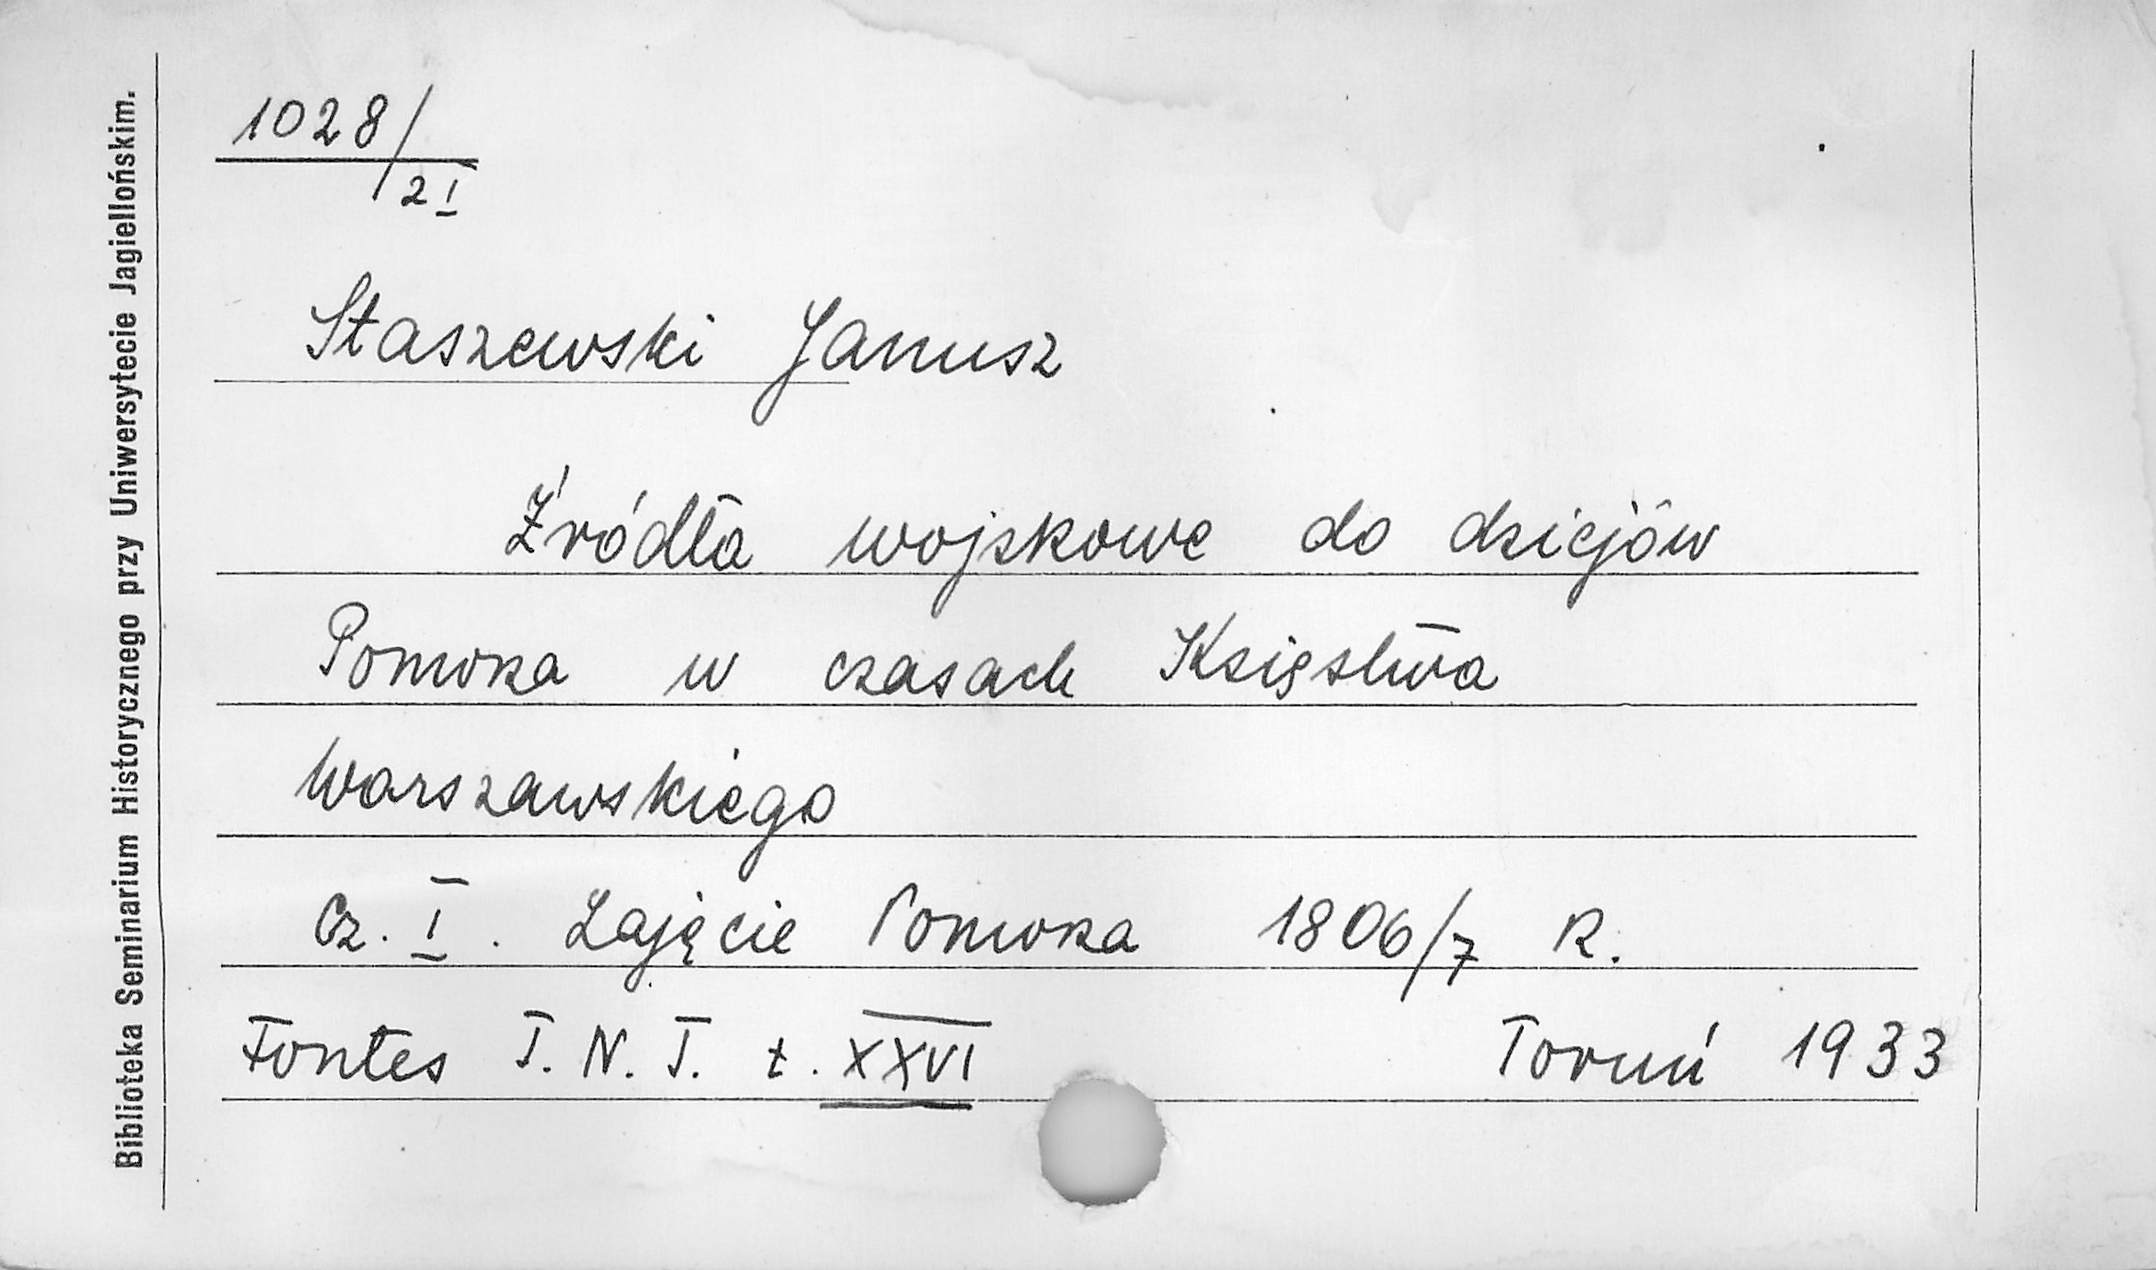 Biblioteka Seminarium Historycznego przy Uniwersytecie Jagiellońskim.
1028/2 I
Staszewski Janusz
Źródła wojskowe do dziejów
Pomorza w czasach Księstwa
Warszawskiego
Cz. I. Zajęcie Pomorza 1806/7 R.
Fontes T. N. T. t. XXVI Toruń 1933